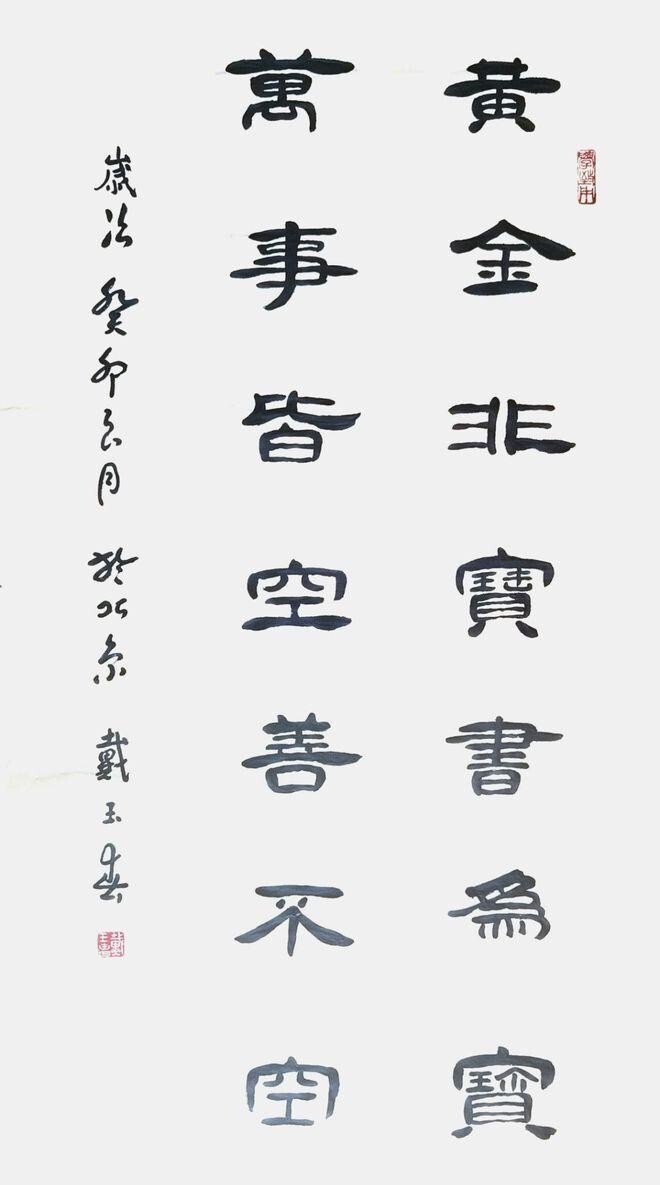 黃金非寶書為寶
萬事皆空善不空
歲次癸卯

於北京
戴玉春